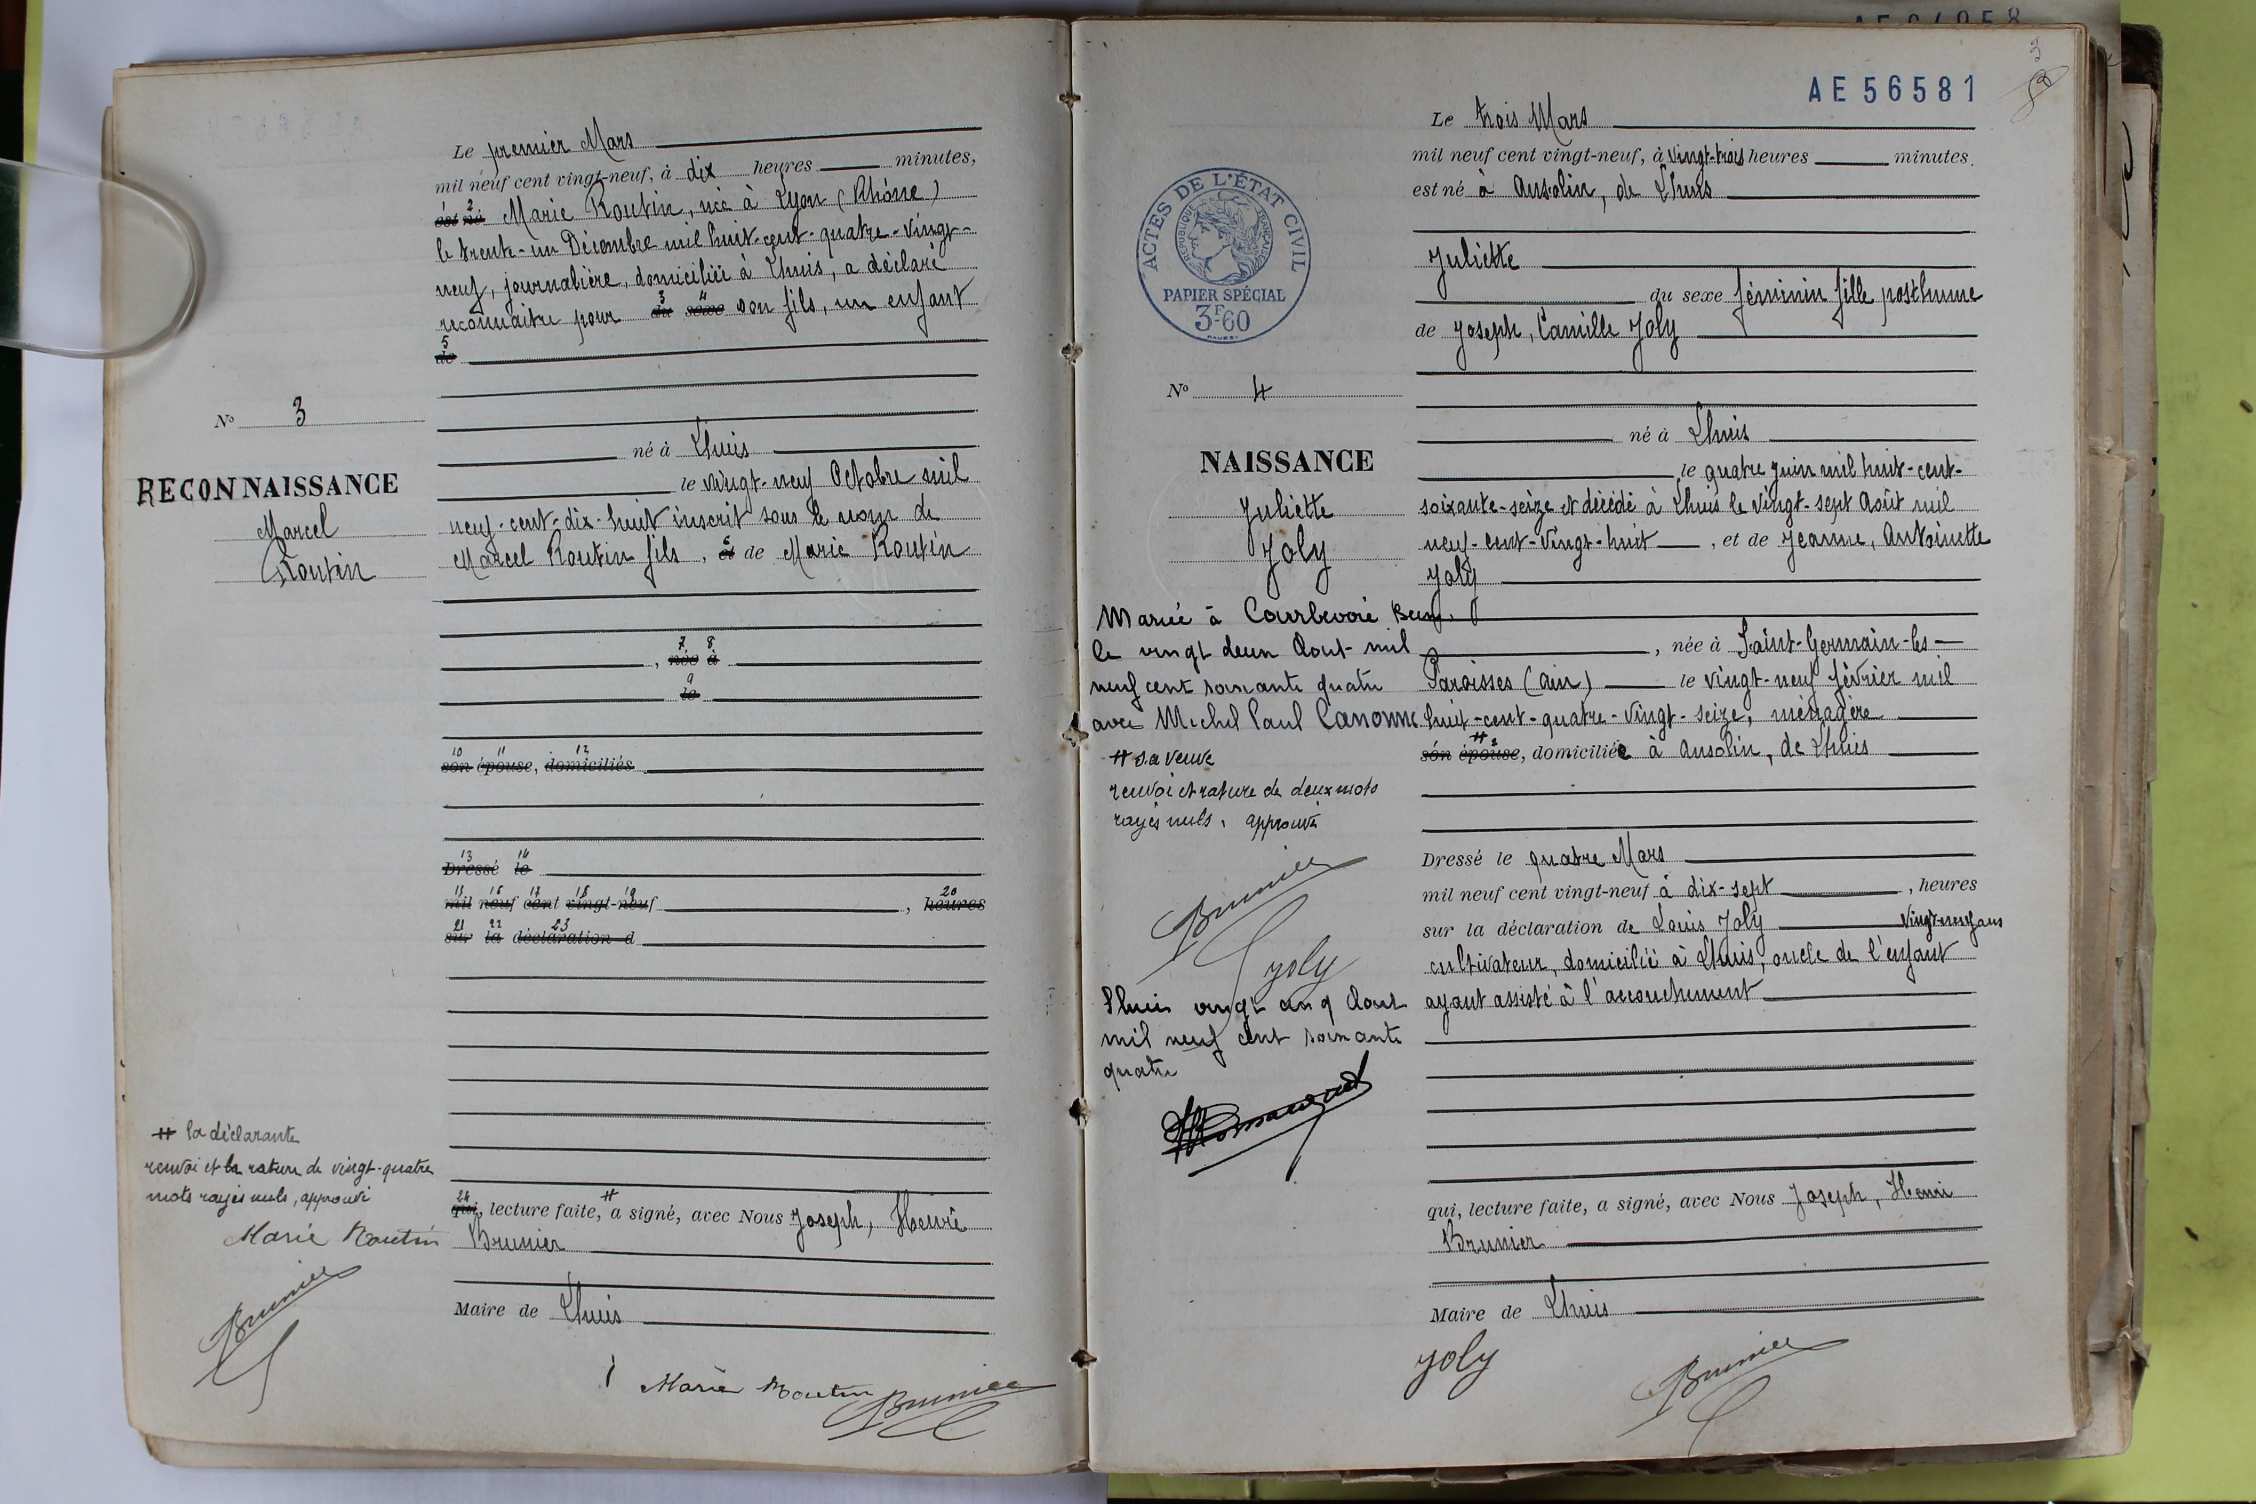 Le premier Mars
mil neuf cent vingt-neuf, à dix heures minutes,
est né Marie Routin, née à Lyon (Rhône)
le trente-un Décembre mil huit-cent-quatre-vingt-
neuf, journalière, domiciliée à Lhuis, a déclaré
reconnaitre pour du sexe son fils, un enfant
de
N° 3
né à Lhuis
RECONNAISSANCE
le vingt-neuf Octobre mil
Marcel
Routin
neuf-cent-dix-huit inscrit sous le nom de
Marcel Routin fils, et de Marie Routin
, née à
le
son épouse, domiciliés
Dressé le
mil neuf cent vingt-neuf , heures
sur la déclaration d
# la déclarante
renvoi et la rature de vingt-quatre
mots rayés nuls, approuvé
Marie Routin
Brunier
qui, lecture faite, # a signé, avec Nous Joseph, Henri
Brunier
Maire de Lhuis
Marie Routin Brunier
AE 56581
3
Le trois Mars
mil neuf cent vingt-neuf, à vingt-trois heures minutes
est né à Ansolin, de Lhuis
ACTES DE L'ÉTAT CIVIL
RÉPUBLIQUE FRANÇAISE
PAPIER SPÉCIAL
3F60
Juliette
du sexe féminin fille posthume
de Joseph, Camille Joly
N° 4
né à Lhuis
NAISSANCE
Juliette
Joly
le quatre juin mil huit-cent-
soixante-seize et décédé à Lhuis le vingt-sept Août mil
neuf-cent-vingt-huit , et de Jeanne, Antoinette
Joly
, née à Saint-Germain-les-
Paroisses (Ain) le vingt-neuf février mil
huit-cent-quatre-vingt-seize, ménagère
son épouse, domiciliée à Ansolin, de Lhuis
Mariée à Courbevoie
le vingt deux Aout mil
neuf cent soixante quatre
avec Michel Paul Canonne
# sa veuve
renvoi et rature de deux mots
rayés nuls, approuvé
Brunier
Joly
Lhuis vingt cinq Aout
mil neuf cent soixante
quatre
Dressé le quatre Mars
mil neuf cent vingt-neuf à dix-sept , heures
sur la déclaration de Louis Joly vingt-neuf ans
cultivateur, domicilié à Lhuis, oncle de l'enfant
ayant assisté à l'accouchement
qui, lecture faite, a signé, avec Nous Joseph, Henri
Brunier
Maire de Lhuis
Joly Brunier